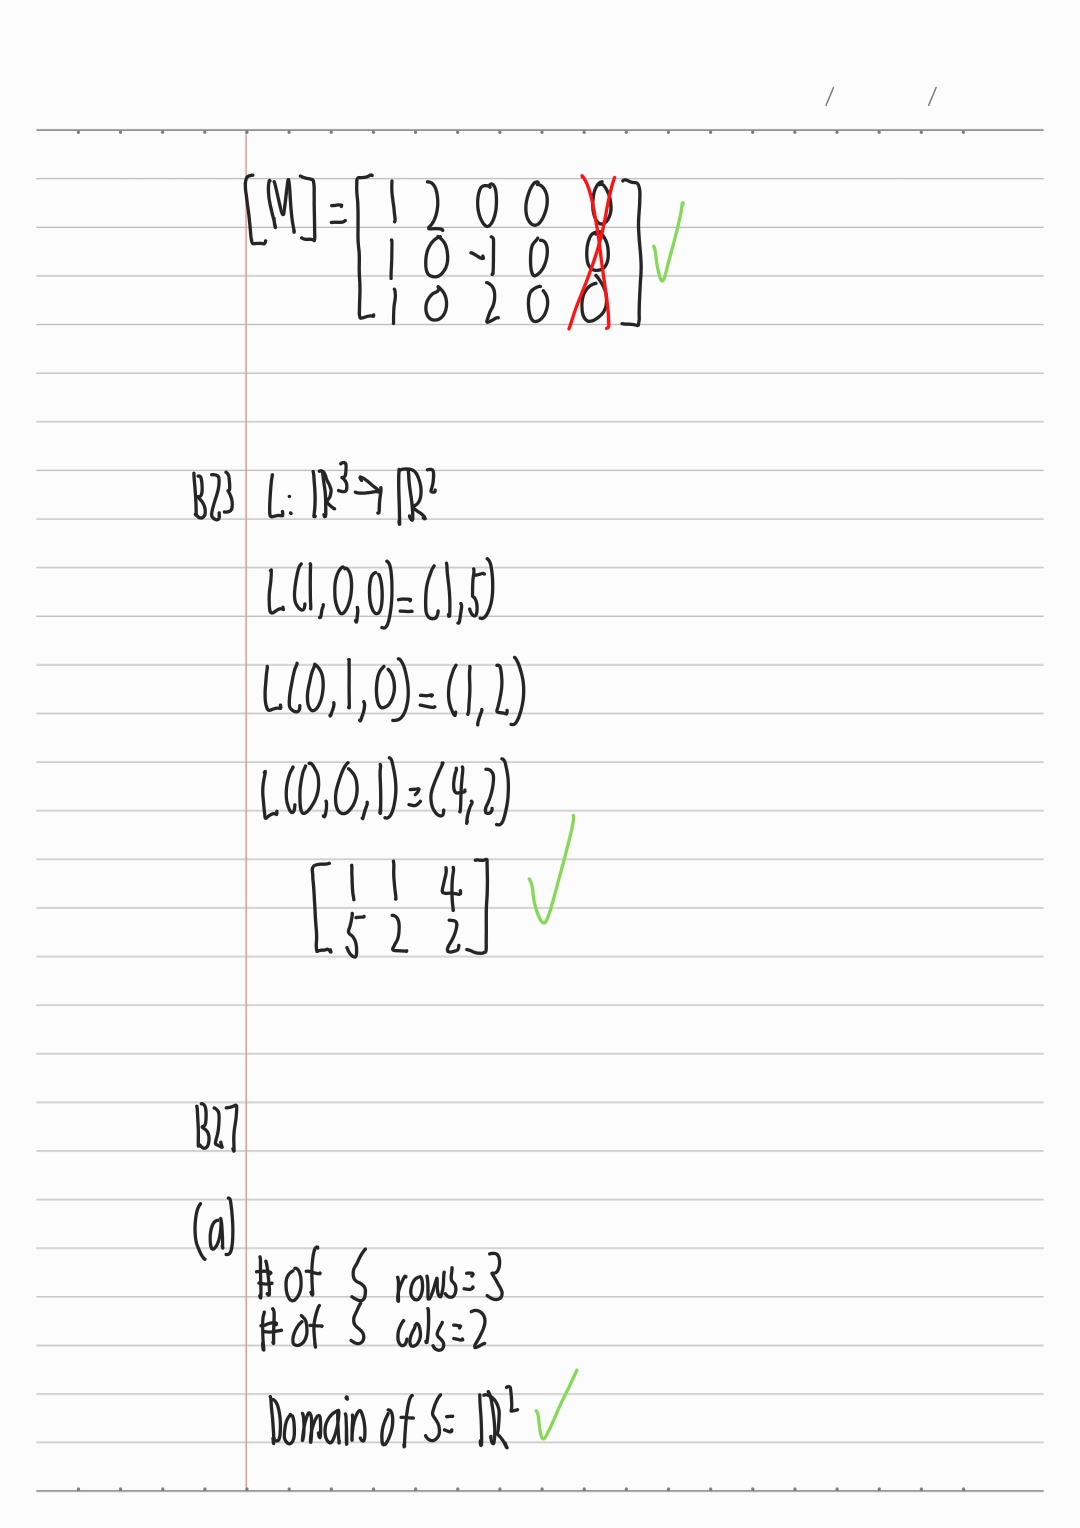 / /
[M] = [1 2 0 0 0
1 0 -1 0 0
1 0 2 0 0]
B23 L: ℝ³→ℝ²
L(1,0,0)=(1,5)
L(0,1,0)=(1,2)
L(0,0,1)=(4,2)
[1 1 4
5 2 2]
B27
(a)
# of S rows=3
# of S cols=2
Domain of S= ℝ²